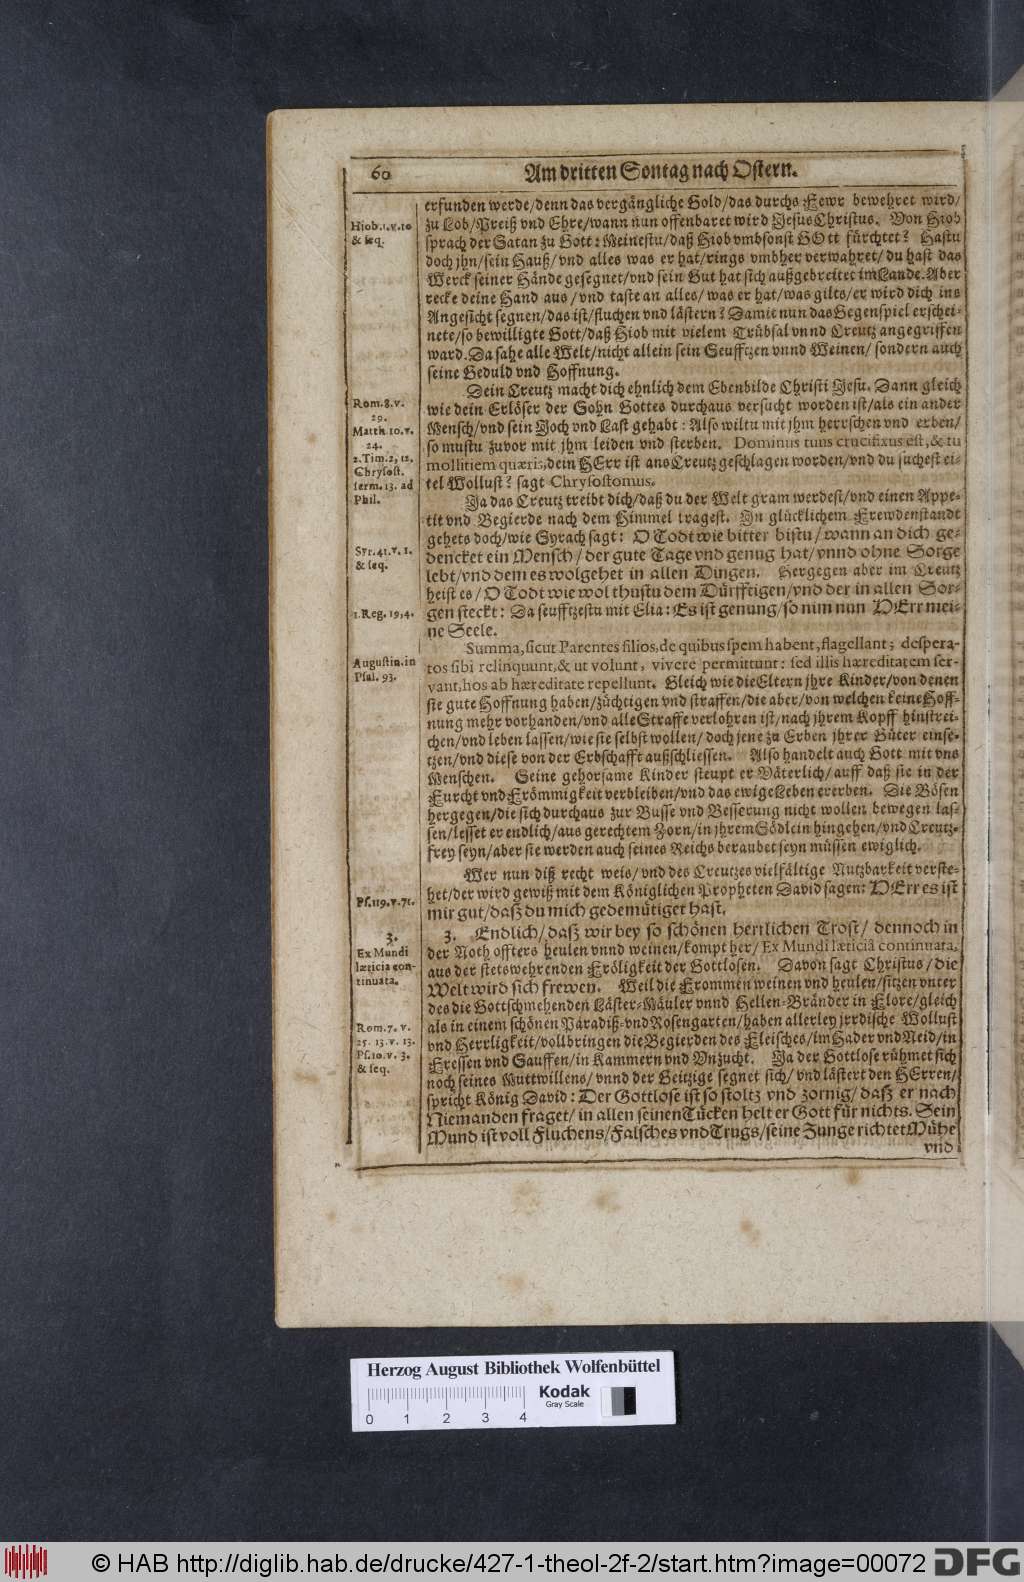 60 Am dritten Sontag nach Ostern.
erfunden werde/denn das vergängliche Gold/das durchs Fewr bewehret wird/
zu Lob/Preiß vnd Ehre/wann nun offenbaret wird Jesus Christus. Von Hiob
sprach der Satan zu Gott: Meinestu/daß Hiob vmbsonst GOtt fürchtet? Hastu
doch jhn/sein Hauß/vnd alles was er hat/rings vmbher verwahret/du hast das
Werck seiner Hände gesegnet/vnd sein Gut hat sich außgebreitet im Lande. Aber
recke deine Hand aus/vnd taste an alles/was er hat/was gilts/er wird dich ins
Angesicht segnen/das ist/fluchen vnd lästern? Damit nun das Gegenspiel erschei-
nete/so bewilligte Gott/daß Hiob mit vielem Trübsal vnnd Creutz angegriffen
ward. Da sahe alle Welt/nicht allein sein Seufftzen vnnd Weinen/sondern auch
seine Gedult vnd Hoffnung.
Dein Creutz macht dich ehnlich dem Ebenbilde Christi Jesu. Dann gleich
wie dein Erlöser der Sohn Gottes durchaus versucht worden ist/als ein ander
Mensch/vnd sein Joch vnd Last gehabt: Also wiltu mit jhm herrschen vnd erben/
so mustu zuvor mit jhm leiden vnd sterben. Dominus tuus crucifixus est, & tu
mollitiem quæris, dein HErr ist ans Creutz geschlagen worden/vnd du suchest ei-
tel Wollust? sagt Chrysostomus.
Ja das Creutz treibt dich/daß du der Welt gram werdest/vnd einen Appe-
tit vnd Begierde nach dem Himmel tragest. In glücklichem Frewdenstandt
gehets doch/wie Syrach sagt: O Todt wie bitter bistu/wann an dich ge-
dencket ein Mensch/der gute Tage vnd genug hat/vnnd ohne Sorge
lebt/vnd dem es wolgehet in allen Dingen. Hergegen aber im Creutz
heist es/O Todt wie wol thustu dem Dürfftigen/vnd der in allen Sor-
gen steckt: Da seufftzestu mit Elia: Es ist genung/so nim nun HErr mei-
ne Seele.
Summa, sicut Parentes filios, de quibus spem habent, flagellant; despera-
tos sibi relinquunt, & ut volunt, vivere permittunt: sed illis hæreditatem ser-
vant, hos ab hæreditate repellunt. Gleich wie die Eltern jhre Kinder/von denen
sie gute Hoffnung haben/züchtigen vnd straffen/die aber/von welchen keine Hoff-
nung mehr vorhanden/vnd alle Straffe verlohren ist/nach jhrem Kopff hinstrei-
chen/vnd leben lassen/wie sie selbst wollen/doch jene zu Erben jhrer Güter einse-
tzen/vnd diese von der Erbschafft außschliessen. Also handelt auch Gott mit vns
Menschen. Seine gehorsame Kinder steupt er Väterlich/auff daß sie in der
Furcht vnd Frömmigkeit verbleiben/vnd das ewige Leben ererben. Die Bösen
hergegen/die sich durchaus zur Busse vnd Besserung nicht wollen bewegen las-
sen/lesset er endlich/aus gerechtem Zorn/in jhrem Södlein hingehen/vnd Creutz-
frey seyn/aber sie werden auch seines Reichs beraubet seyn müssen ewiglich.
Wer nun diß recht weis/vnd des Creutzes vielfältige Nutzbarkeit verste-
het/der wird gewiß mit dem Königlichen Propheten David sagen: HErr es ist
mir gut/daß du mich gedemütiget hast.
3. Endlich/daß wir bey so schönen herrlichen Trost/dennoch in
der Noth offters heulen vnnd weinen/kompt her/Ex Mundi læticiâ continuata,
aus der stetswehrenden Fröligkeit der Gottlosen. Davon sagt Christus/die
Welt wird sich frewen. Weil die Frommen weinen vnd heulen/sitzen vnter
des die Gottschmehenden Läster-Mäuler vnnd Hellen-Bränder in Flore/gleich
als in einem schönen Paradiß- vnd Rosengarten/haben allerley jrrdische Wollust
vnd Herrligkeit/vollbringen die Begierden des Fleisches/im Hader vnd Neid/in
Fressen vnd Sauffen/in Kammern vnd Vnzucht. Ja der Gottlose rühmet sich
noch seines Muttwillens/vnnd der Geitzige segnet sich/vnd lästert den HErren/
spricht König David: Der Gottlose ist so stoltz vnd zornig/daß er nach
Niemanden fraget/in allen seinen Tücken helt er Gott für nichts. Sein
Mund ist voll Fluchens/Falsches vnd Trugs/seine Zunge richtet Mühe
vnd
Hiob.1.v.10
& seq.
Rom.8.v.
29.
Matth.10.v.
24.
2.Tim.2,12.
Chrysost.
serm.13. ad
Phil.
Syr.41.v.1.
& seq.
1.Reg.19,4.
Augustin.in
Psal. 93.
Ps.119.v.71.
3.
Ex Mundi
læticia con-
tinuata.
Rom.7.v.
25. 13.v.13.
Ps.10.v.3.
& seq.
Herzog August Bibliothek Wolfenbüttel
0 1 2 3 4
Kodak
Gray Scale
© HAB http://diglib.hab.de/drucke/427-1-theol-2f-2/start.htm?image=00072
DFG